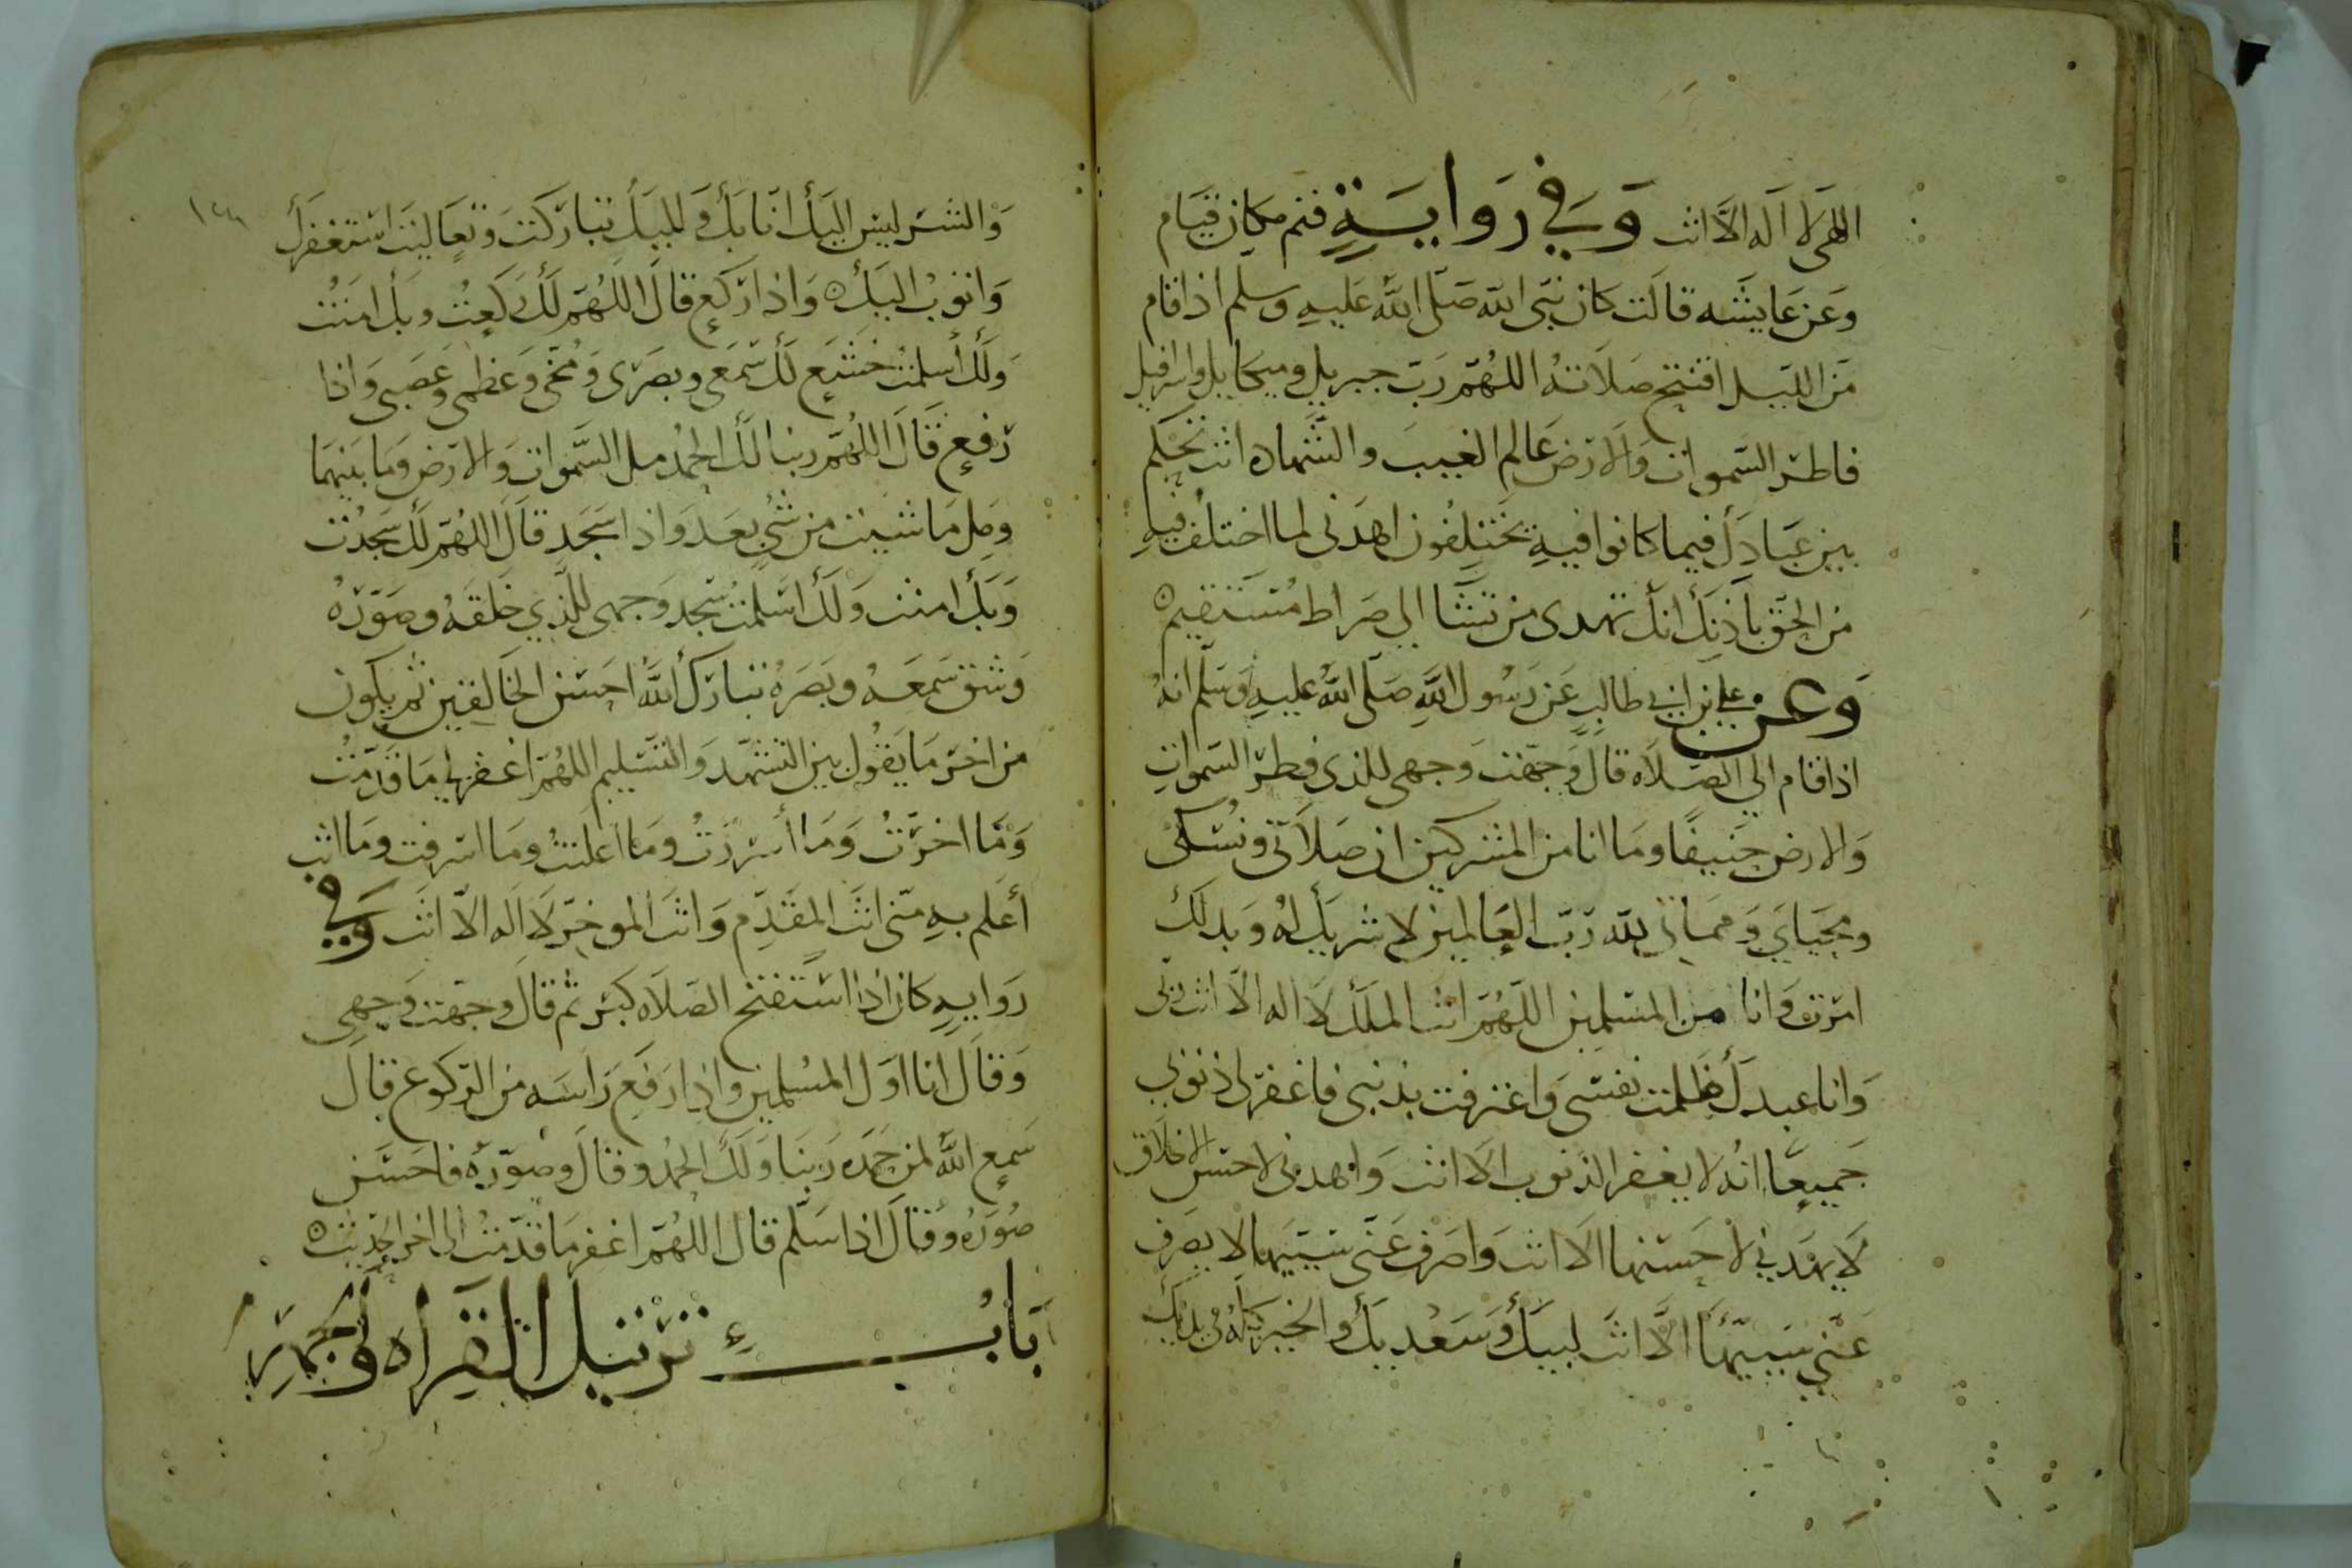 الهي لا اله الا انت وفي رواية قيم مكان قيام
وعن عايشه قالت كان نبي الله صلى الله عليه وسلم اذا قام
من الليل افتتح صلاته اللهم رب جبريل وميكايل واسرافيل
فاطر السموات والارض عالم الغيب والشهاده انت تحكم
بين عبادك فيما كانوا فيه يختلفون اهدني لما اختلف فيه
من الحق باذنك انك تهدي من تشا الي صراط مستقيم
وعن علي بن ابي طالب عن رسول الله صلى الله عليه وسلم انه
اذا قام الي الصلاه قال وجهت وجهي للذي فطر السموات
والارض حنيفا وما انا من المشركين ان صلاتي ونسكي
ومحياي ومماتي لله رب العالمين لا شريك له وبذلك
امرت وانا من المسلمين اللهم انت الملك لا اله الا انت ربي
وانا عبدك ظلمت نفسي واعترفت بذنبي فاغفر لي ذنوبي
جميعا انه لا يغفر الذنوب الا انت واهدني لاحسن الاخلاق
لا يهدني لاحسنها الا انت واصرف عني سييها لا يصرف
عني سييها الا انت لبيك وسعديك والخير كله في يديك
والشر ليس اليك انا بك واليك تباركت وتعاليت استغفرك
واتوب اليك واذا ركع قال اللهم لك ركعت وبك امنت
ولك اسلمت خشع لك سمعي وبصري ومخي وعظمي وعصبي واذا
رفع قال اللهم ربنا لك الحمد مل السموات والارض وما بينهما
ومل ما شيت من شي بعد واذا سجد قال اللهم لك سجدت
وبك امنت ولك اسلمت سجد وجهي للذي خلقه وصوره
وشق سمعه وبصره تبارك الله احسن الخالقين ثم يكون
من اخر ما يقول بين التشهد والتسليم اللهم اغفر لي ما قدمت
وما اخرت وما أسررت وما اعلنت وما اسرفت وما انت
أعلم به مني انت المقدم وانت الموخر لا اله الا انت وفي
روايه كان اذا استفتح الصلاه كبر ثم قال وجهت وجهي
وقال انا اول المسلمين واذا رفع راسه من الركوع قال
سمع الله لمن حمده ربنا ولك الحمد وقال وصوره فاحسن
صوره وقال اذا سلم قال اللهم اغفر ما قدمت الى اخر الحديث
باب ترتيل القراه